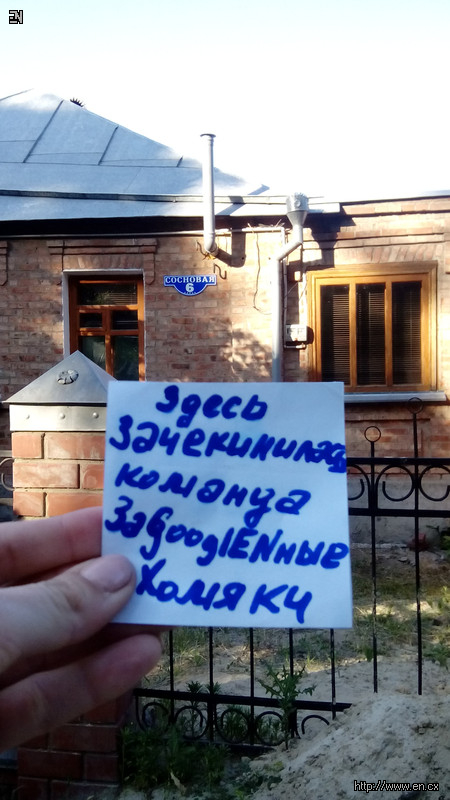 EN
СОСНОВАЯ
6
Здесь
Зачекинилась
команда
ЗаGooglENные
Хомяки
http://www.en.cx